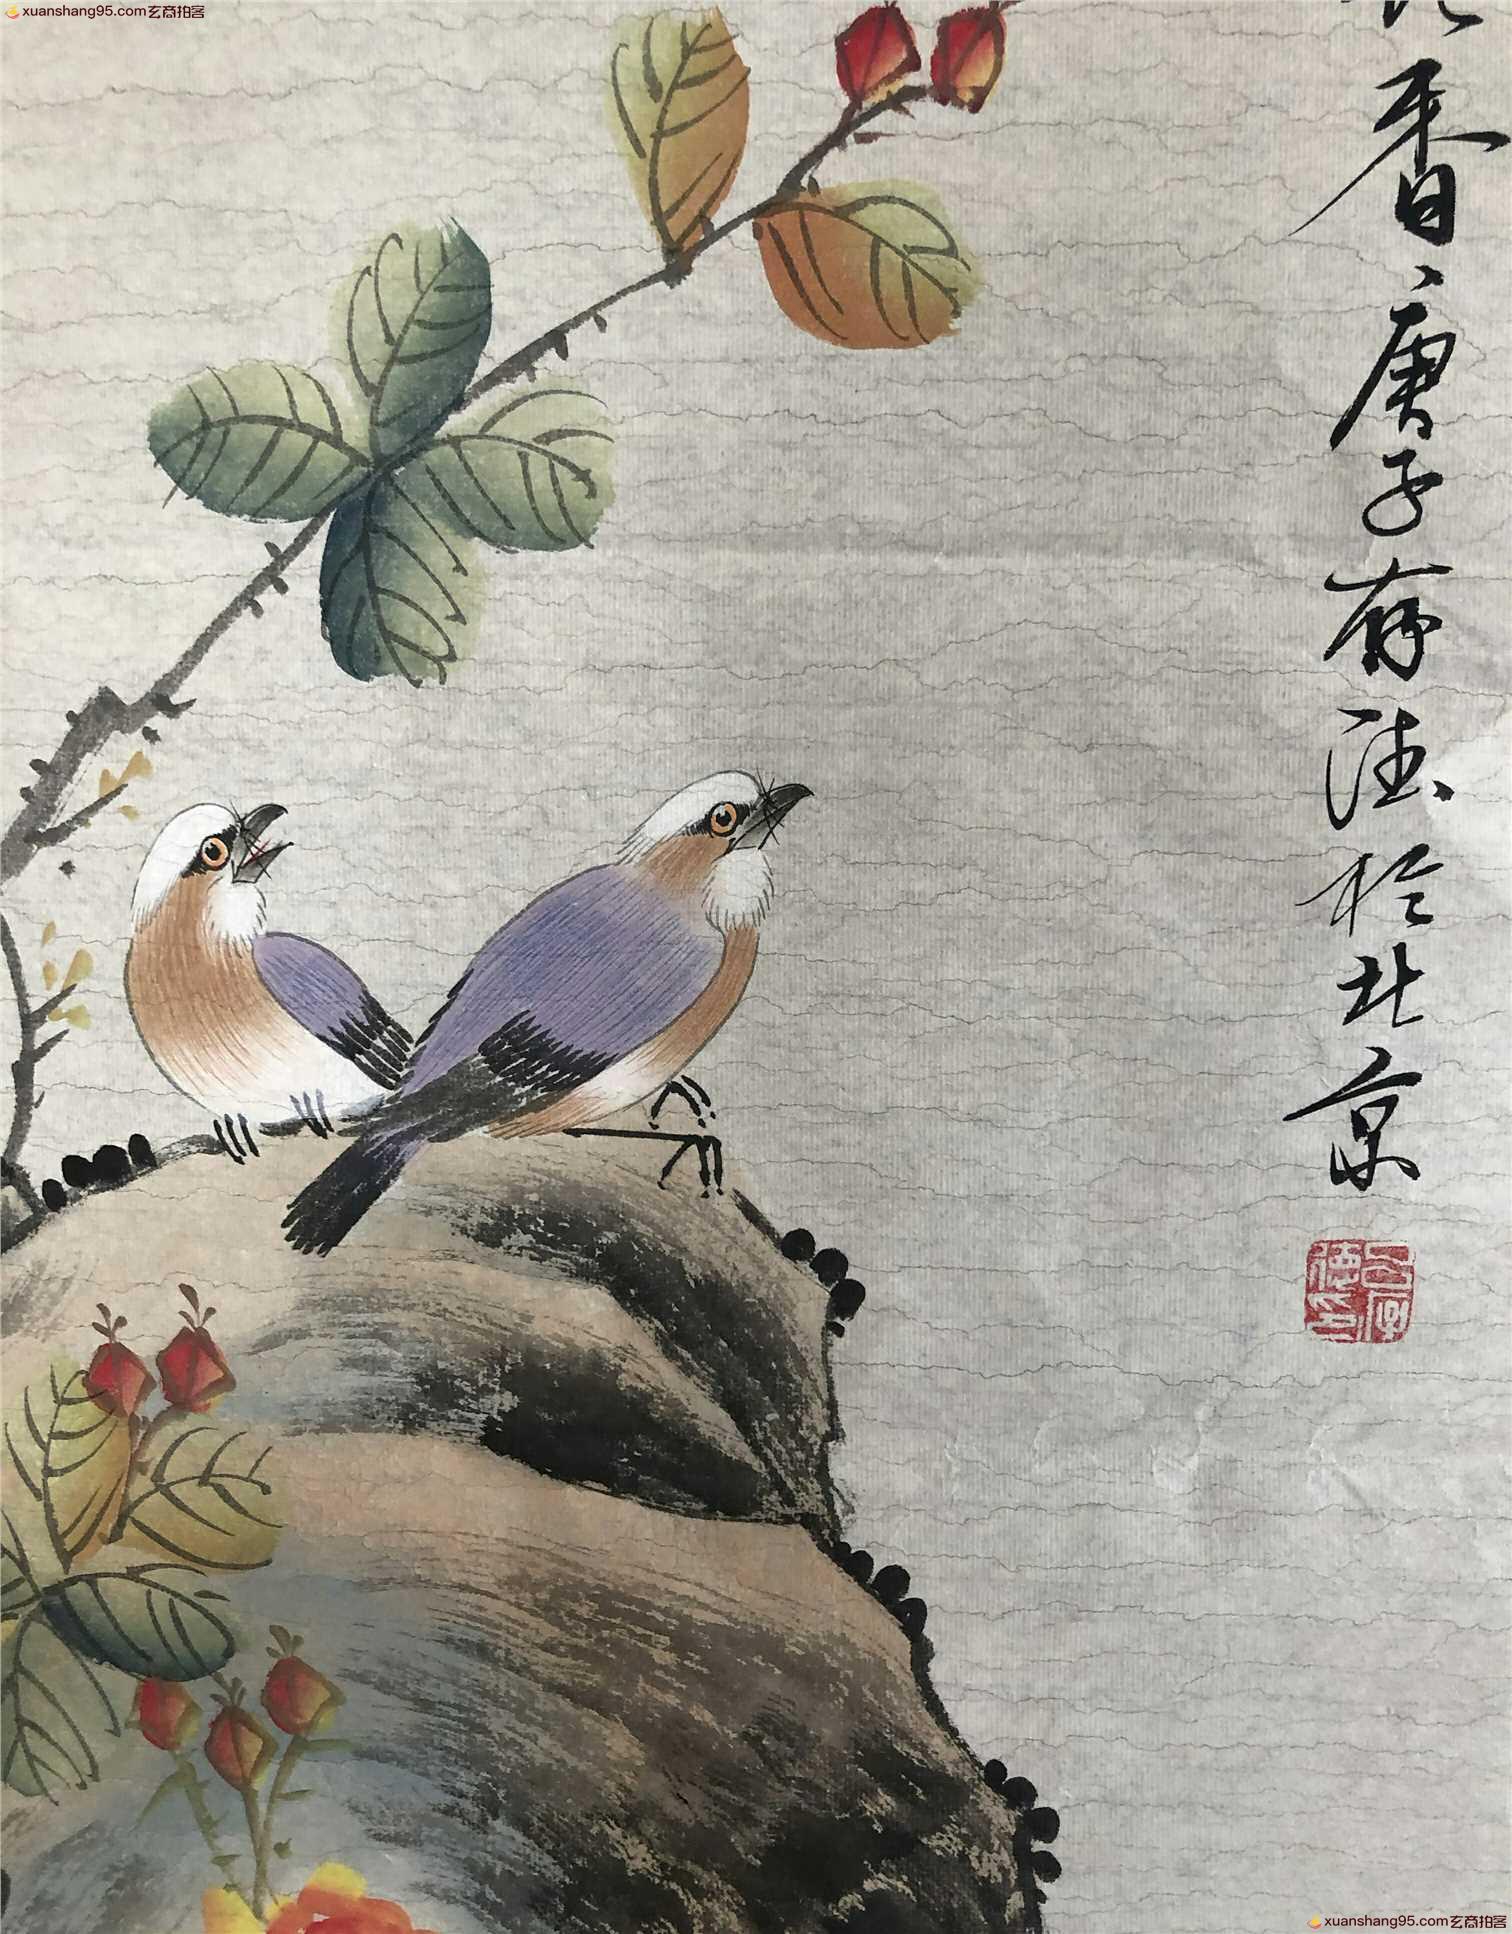 xuanshang95.com玄商拍客
香庚子德於北京
xuanshang95.com玄商拍客